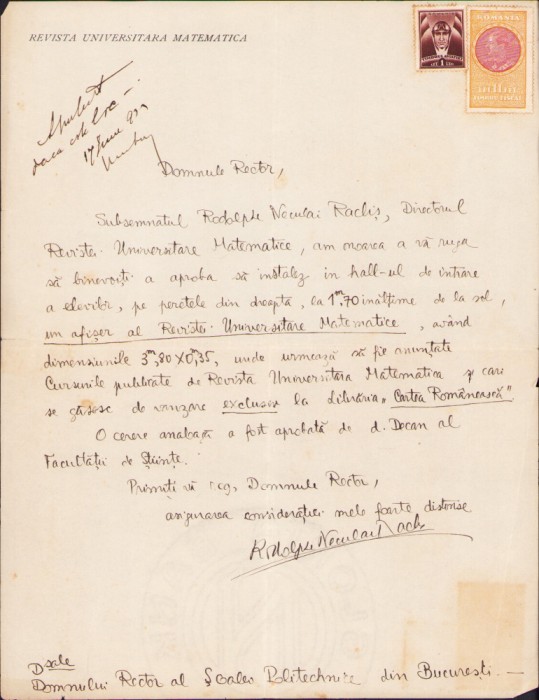 REVISTA UNIVERSITARA MATEMATICA
ROMÂNIA
TIMBRU FISCAL
17 Iunie 93
Domnule Rector,
Subsemnatul Rodolphe Neculai Rachiș, Directorul
Revistei Universitare Matematice, am onoarea a vă ruga
să binevoiți a aproba să instalez in hall-ul de intrare
a elevilor, pe peretele din dreapta, la 1m,70 inălțime de la sol,
un afișer al Revistei Universitare Matematice, având
dimensiunile 3m,80 X 0m,35, unde urmează să fie anunțate
Cursurile publicate de Revista Universitara Matematica și cari
se găsesc de vanzare exclusiv la librăria „Cartea Românească"
O cerere analoagă a fost aprobată de d. Decan al
Facultăței de Științe.
Primiți vă rog, Domnule Rector,
asigurarea considerației mele foarte distinse
Rodolphe Neculai Rachiș
Dsale
Domnului Rector al Școalei Politechnice din București. —